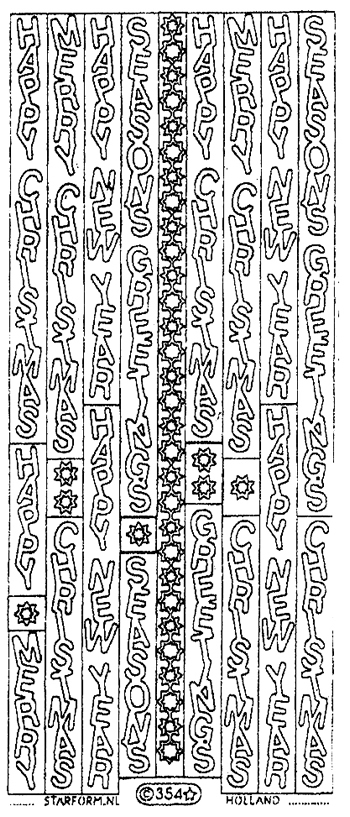 HAPPY CHRISTMAS
HAPPY
MERRY
MERRY CHRISTMAS
CHRISTMAS
HAPPY NEW YEAR
HAPPY NEW YEAR
SEASONS GREETINGS
SEASONS
HAPPY CHRISTMAS
GREETINGS
MERRY CHRISTMAS
CHRISTMAS
HAPPY NEW YEAR
HAPPY NEW YEAR
SEASONS GREETINGS
CHRISTMAS
STARFORM.NL ©354☆ HOLLAND